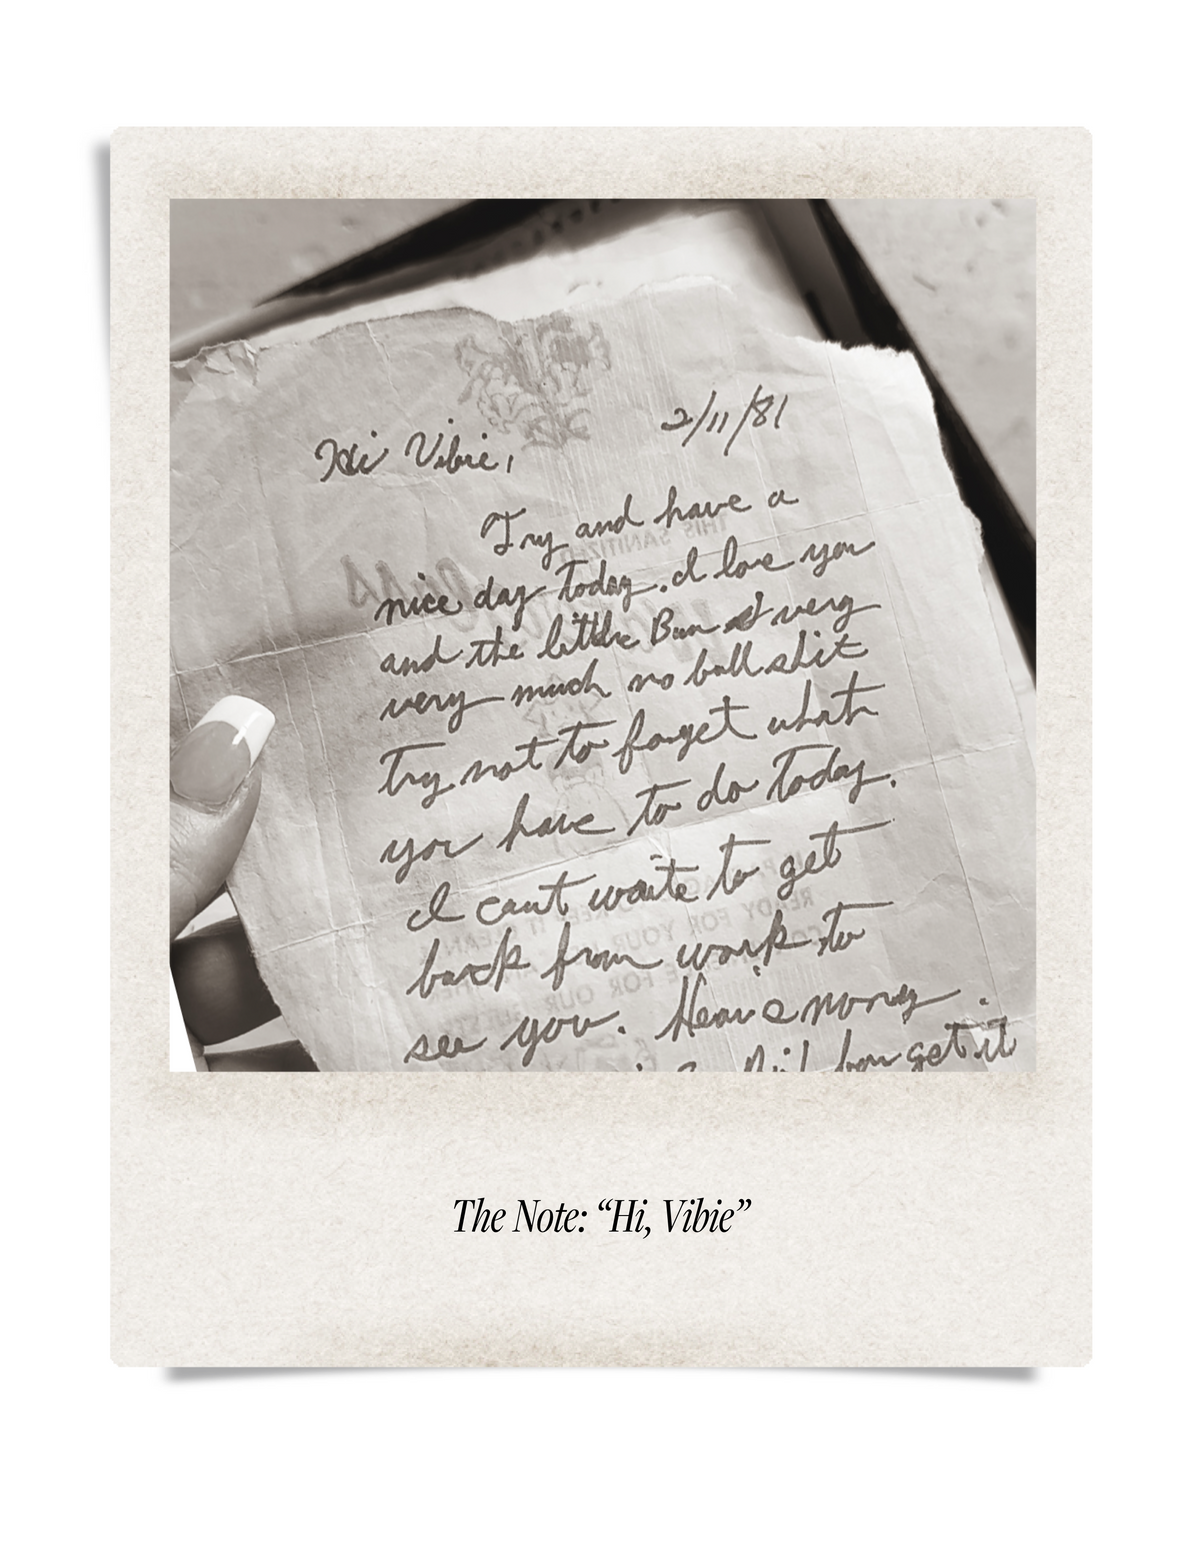 2/11/81
Hi Vibie,
Try and have a
nice day today. I love you
and the little Bun very
very much no bull shit
try not to forget what
you have to do today.
I cant waite to get
back from work to
see you. Hear's money.
get it
THIS SANITIZED
READY FOR YOUR
FOR OUR GUEST
The Note: “Hi, Vibie”